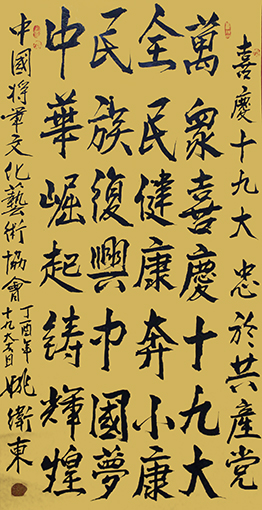 喜慶十九大 忠於共產党
萬衆喜慶十九大
全民健康奔小康
民族復興中國夢
中華崛起鑄輝煌
中國将軍文化藝術協會
丁酉年
十九大日
姚衛東